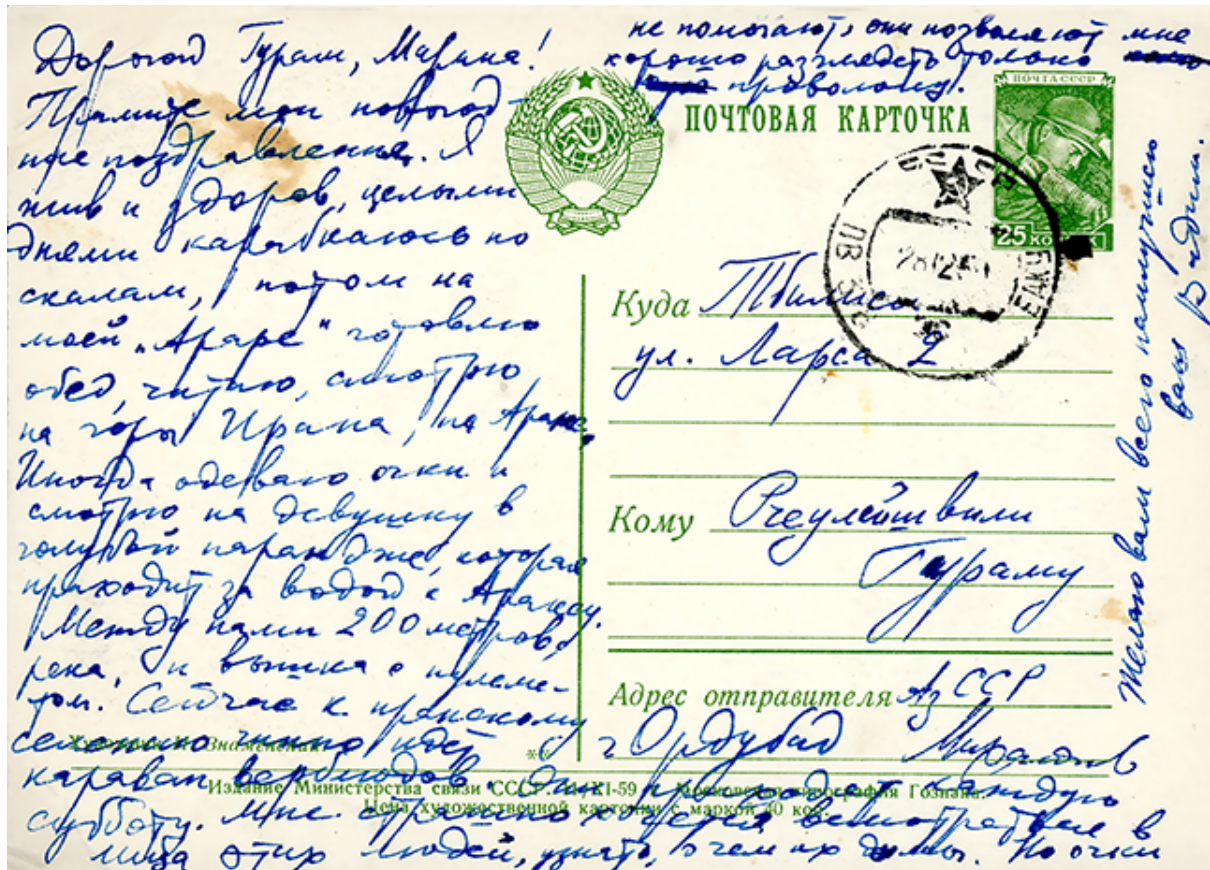 Дорогой Гурам, Марина!
Примите мои новогод-
ние поздравления. Я
жив и здоров, целыми
днями карабкаюсь по
скалам, потом на
моей „Арарс“ готовлю
обед, читаю, смотрю
на горы Ирана, на Аракс.
Иногда одеваю очки и
смотрю на девушку в
голубой парандже, которая
приходит за водой к Араксу.
Между нами 200 метров,
река, и вышка с пулеме-
том. Сейчас к иранскому
селению чинно идёт
караван верблюдов. Он проходит каждую
субботу. Мне страшно хочется всмотреться в
лица этих людей, узнать, о чем их думы. Но очки
не помогают, они позволяют мне
хорошо разглядеть только
проволоку.
Желаю вам всего наилучшего
ваш Вадим.
ПОЧТОВАЯ КАРТОЧКА
ПОЧТА СССР
25 КОПЕЕК
СССР
28 12 59
Куда Тбилиси
ул. Ларса 2
Кому Рчеулейшвили
Гураму
Адрес отправителя Аз ССР
г Ордубад
Художник И. Знаменский
Издание Министерства связи СССР. XI-59 г. Московская типография Гознака.
Цена художественной карточки с маркой 40 коп.